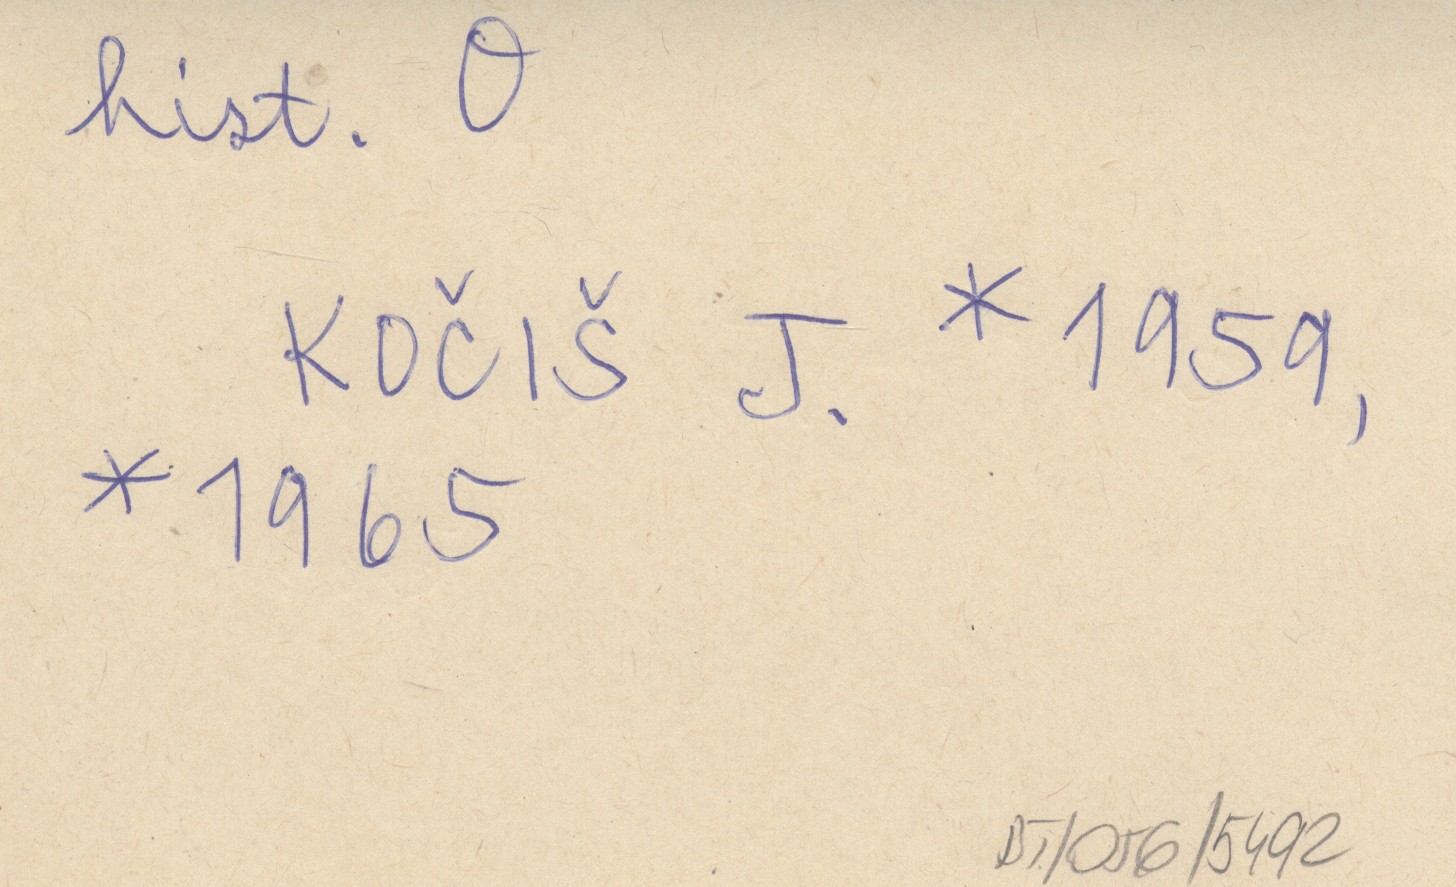 hist. O
KOČIŠ J. *1959,
*1965
DT/056/5492